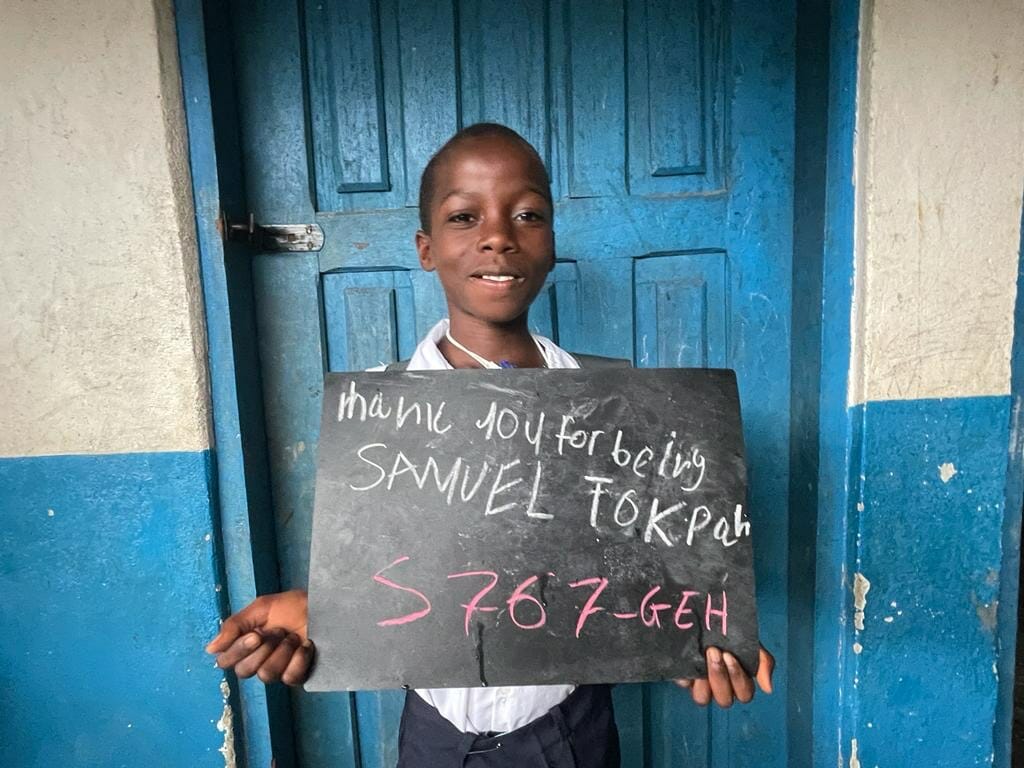 thank you for being
SAMUEL TOKPah
S767-GEH